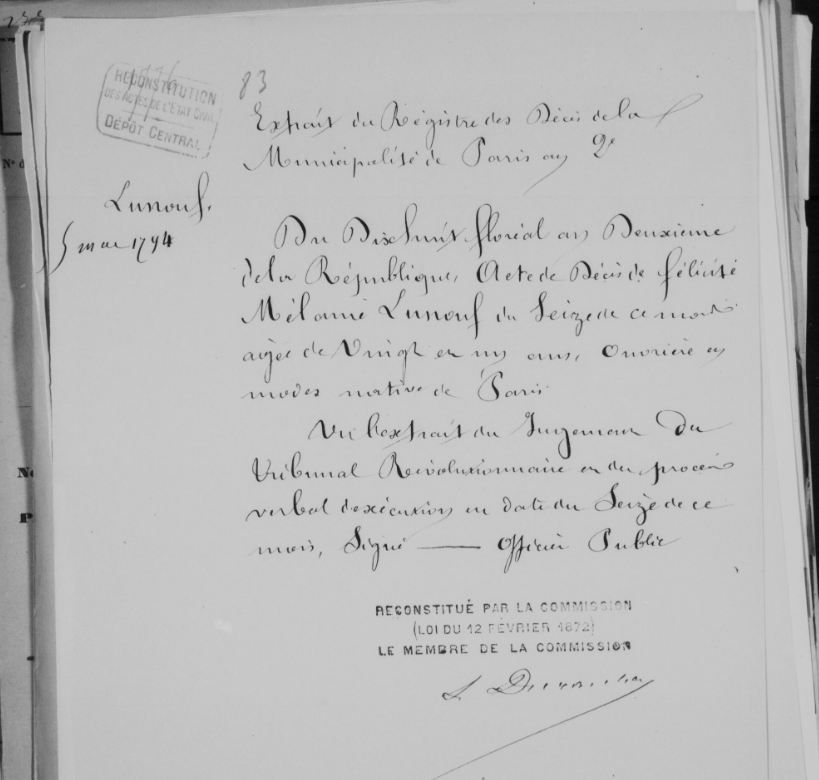 83
RECONSTITUTION
DES ACTES DE L'ÉTAT CIVIL
DÉPÔT CENTRAL
Extrait du Régistre des Décès de la
Municipalité de Paris an 2e
Lunouf.
5 mai 1794
Du Dix huit floréal an Deuxieme
de la République, Acte de Décès de félicité
Mélanie Lunouf du Seize de ce mois
agée de Vingt et un ans, Ouvrière en
modes native de Paris
Vu l'extrait du Jugement du
Tribunal Révolutionnaire et du procès
verbal d'exécution en date du Seize de ce
mois, Signé — Officier Public
RECONSTITUÉ PAR LA COMMISSION
(LOI DU 12 FÉVRIER 1872)
LE MEMBRE DE LA COMMISSION